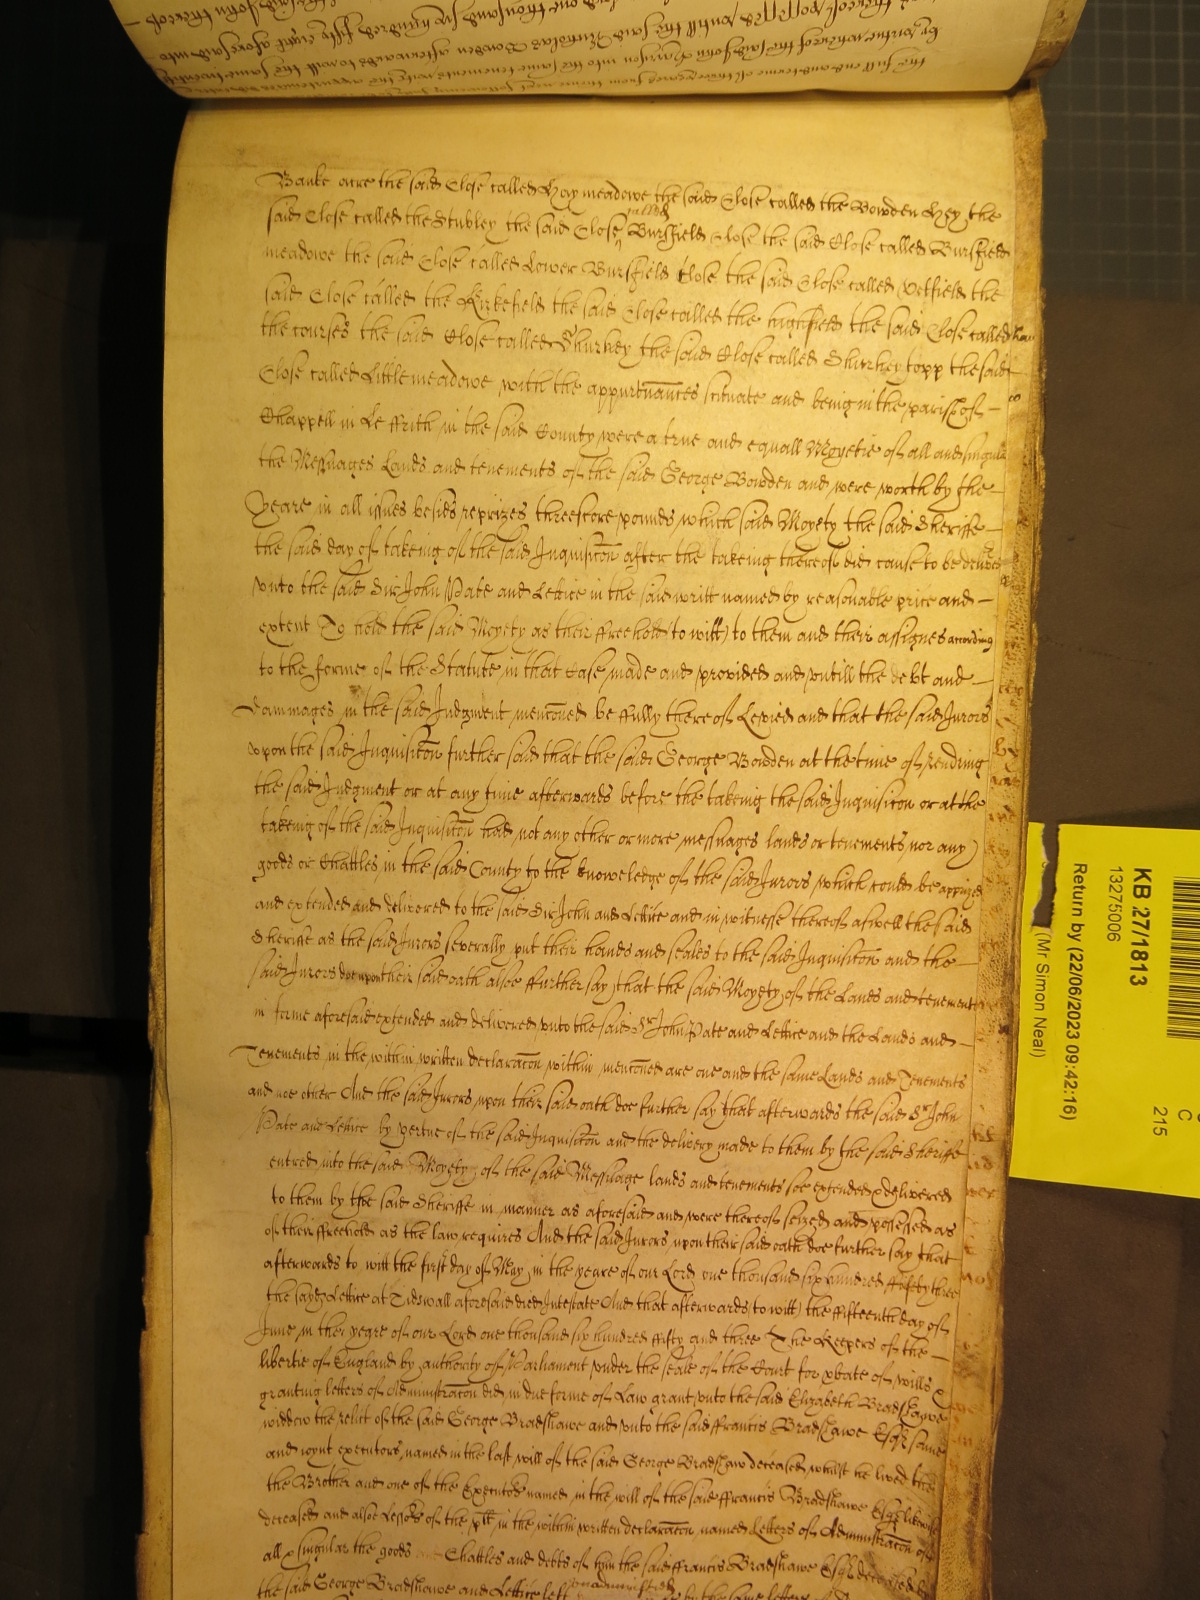 Banke acre the said Close called Hay meadowe the said Close called the Bowden Hey the
said Close called the Stubley the said Close called Bursfield Close the said Close called Bursfield
meadowe the said Close called Lower Bursfield Close the said Close called Oetfield the
said Close called the Kirkefield the said Close called the highfield the said Close called
the courses the said Close called Shurkey the said Close called Shurkey topp the said
Close called Little meadowe with the appurtnances scituate and being in the parish of
Chappell in Le ffrith in the said County were a true and equall Moyetie of all and singuler
the Messuages Lands and tenements of the said George Bowden and were worth by the
yeare in all issues besides reprizes threescore pounds which said Moyety the said Sheriffe
the said day of takeing of the said Inquisicon after the takeing thereof did cause to be delivered
vnto the said Sir John Pate and Lettice in the said writt named by reasonable price and
extent To hold the said Moyety as their ffreehold (to witt) to them and their assignes according
to the forme of the Statute in that Case made and provided and vntill the debt and
dammages in the said Judgment menconed be ffully thereof Levied and that the said Jurors
vpon the said Inquisicon further said that the said George Bowden at the time of rendring
the said Judgment or at any time afterwards before the takeing the said Inquisicon or at the
takeing of the said Inquisicon had not any other or more messuages lands or tenements nor any
goods or Chattles in the said County to the knowledge of the said Jurors which could be apprized
and extended and delivered to the said Sir John and Lettice and in witnesse thereof aswell the said
Sheriffe as the said Jurors severally put their hands and seales to the said Inquisicon and the
said Jurors doe vpon their said oath alsoe ffurther say that the said Moyety of the Lands and tenements
in forme aforesaid extended and delivered vnto the said Sr John Pate and Lettice and the Lands and
Tenements in the within written declaracon within menconed are one and the same Lands and Tenements
and noe other And the said Jurors vpon their said oath doe further say that afterwards the said Sr John
Pate and Lettice by vertue of the said Inquisicon and the delivery made to them by the said Sheriffe
entred into the said Moyety of the said Messuage lands and tenements soe extended & delivered
to them by the said Sheriffe in manner as aforesaid and were thereof seized and possessed as
of their ffreehold as the law requires And the said Jurors vpon their said oath doe further say that
afterwards to witt the first day of May in the yeare of our Lord one thousand six hundred ffifty three
the sayd Lettice at Tidswall aforesaid died Intestate And that afterwards (to witt) the ffifteenth day of
June in the yeare of our Lord one thousand six hundred ffifty and three The Keepers of the
libertie of England by authority of Parliament vnder the seale of the Court for pbate of wills &
granting letters of Administracon did in due forme of Law grant vnto the said Elizabeth Bradshawe
widdow the relict of the said George Bradshawe and vnto the said ffrancis Bradshawe Esqr
and ioynt executors named in the last will of the said George Bradshaw deceased whilst he lived the
the Brother and one of the Executors named in the will of the said ffrancis Bradshawe Esqr likewise
deceased and alsoe Lessors of the plt in the within written declaracon named Letters of Administracon of
all & singular the goods Chattles and debts of him the said ffrancis Bradshawe Esqr deceased by
the said George Bradshawe and Lettice left vnadministred by the same letters
KB 27/1813
13275006
Return by (22/06/2023 09:42:16)
(Mr Simon Neal)
C
215